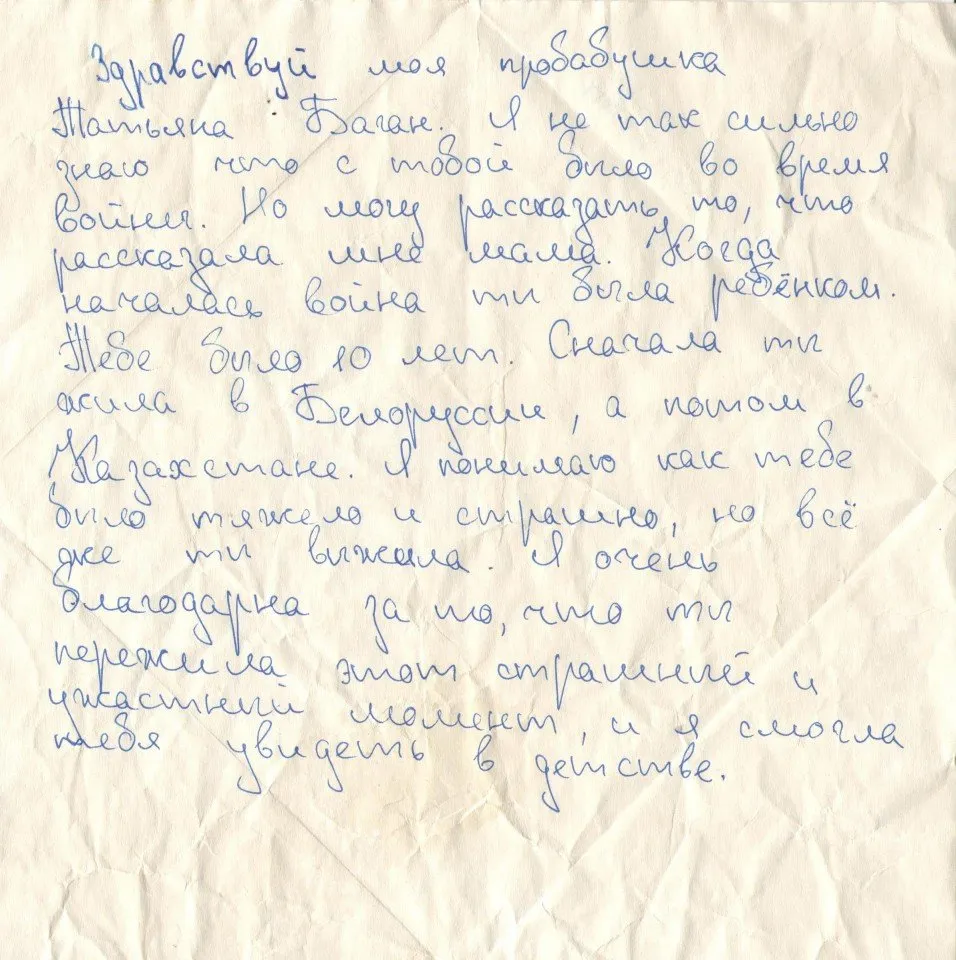 Здравствуй моя пробабушка
Татьяна Баган. Я не так сильно
знаю что с тобой было во время
войны. Но могу рассказать то, что
рассказала мне мама. Когда
началась война ты была ребёнком.
Тебе было 10 лет. Сначала ты
жила в Белоруссии, а потом в
Казахстане. Я понимаю как тебе
было тяжело и страшно, но всё
же ты выжила. Я очень
благодарна за то, что ты
пережила этот страшный и
ужастный момент, и я смогла
тебя увидеть в детстве.